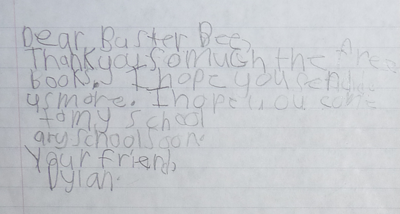 Dear Buster Bee,
Thank you so much the free
books. I hope you send
us more. I hope you come
to my school
ary school soon.
Your friend,
Dylan.